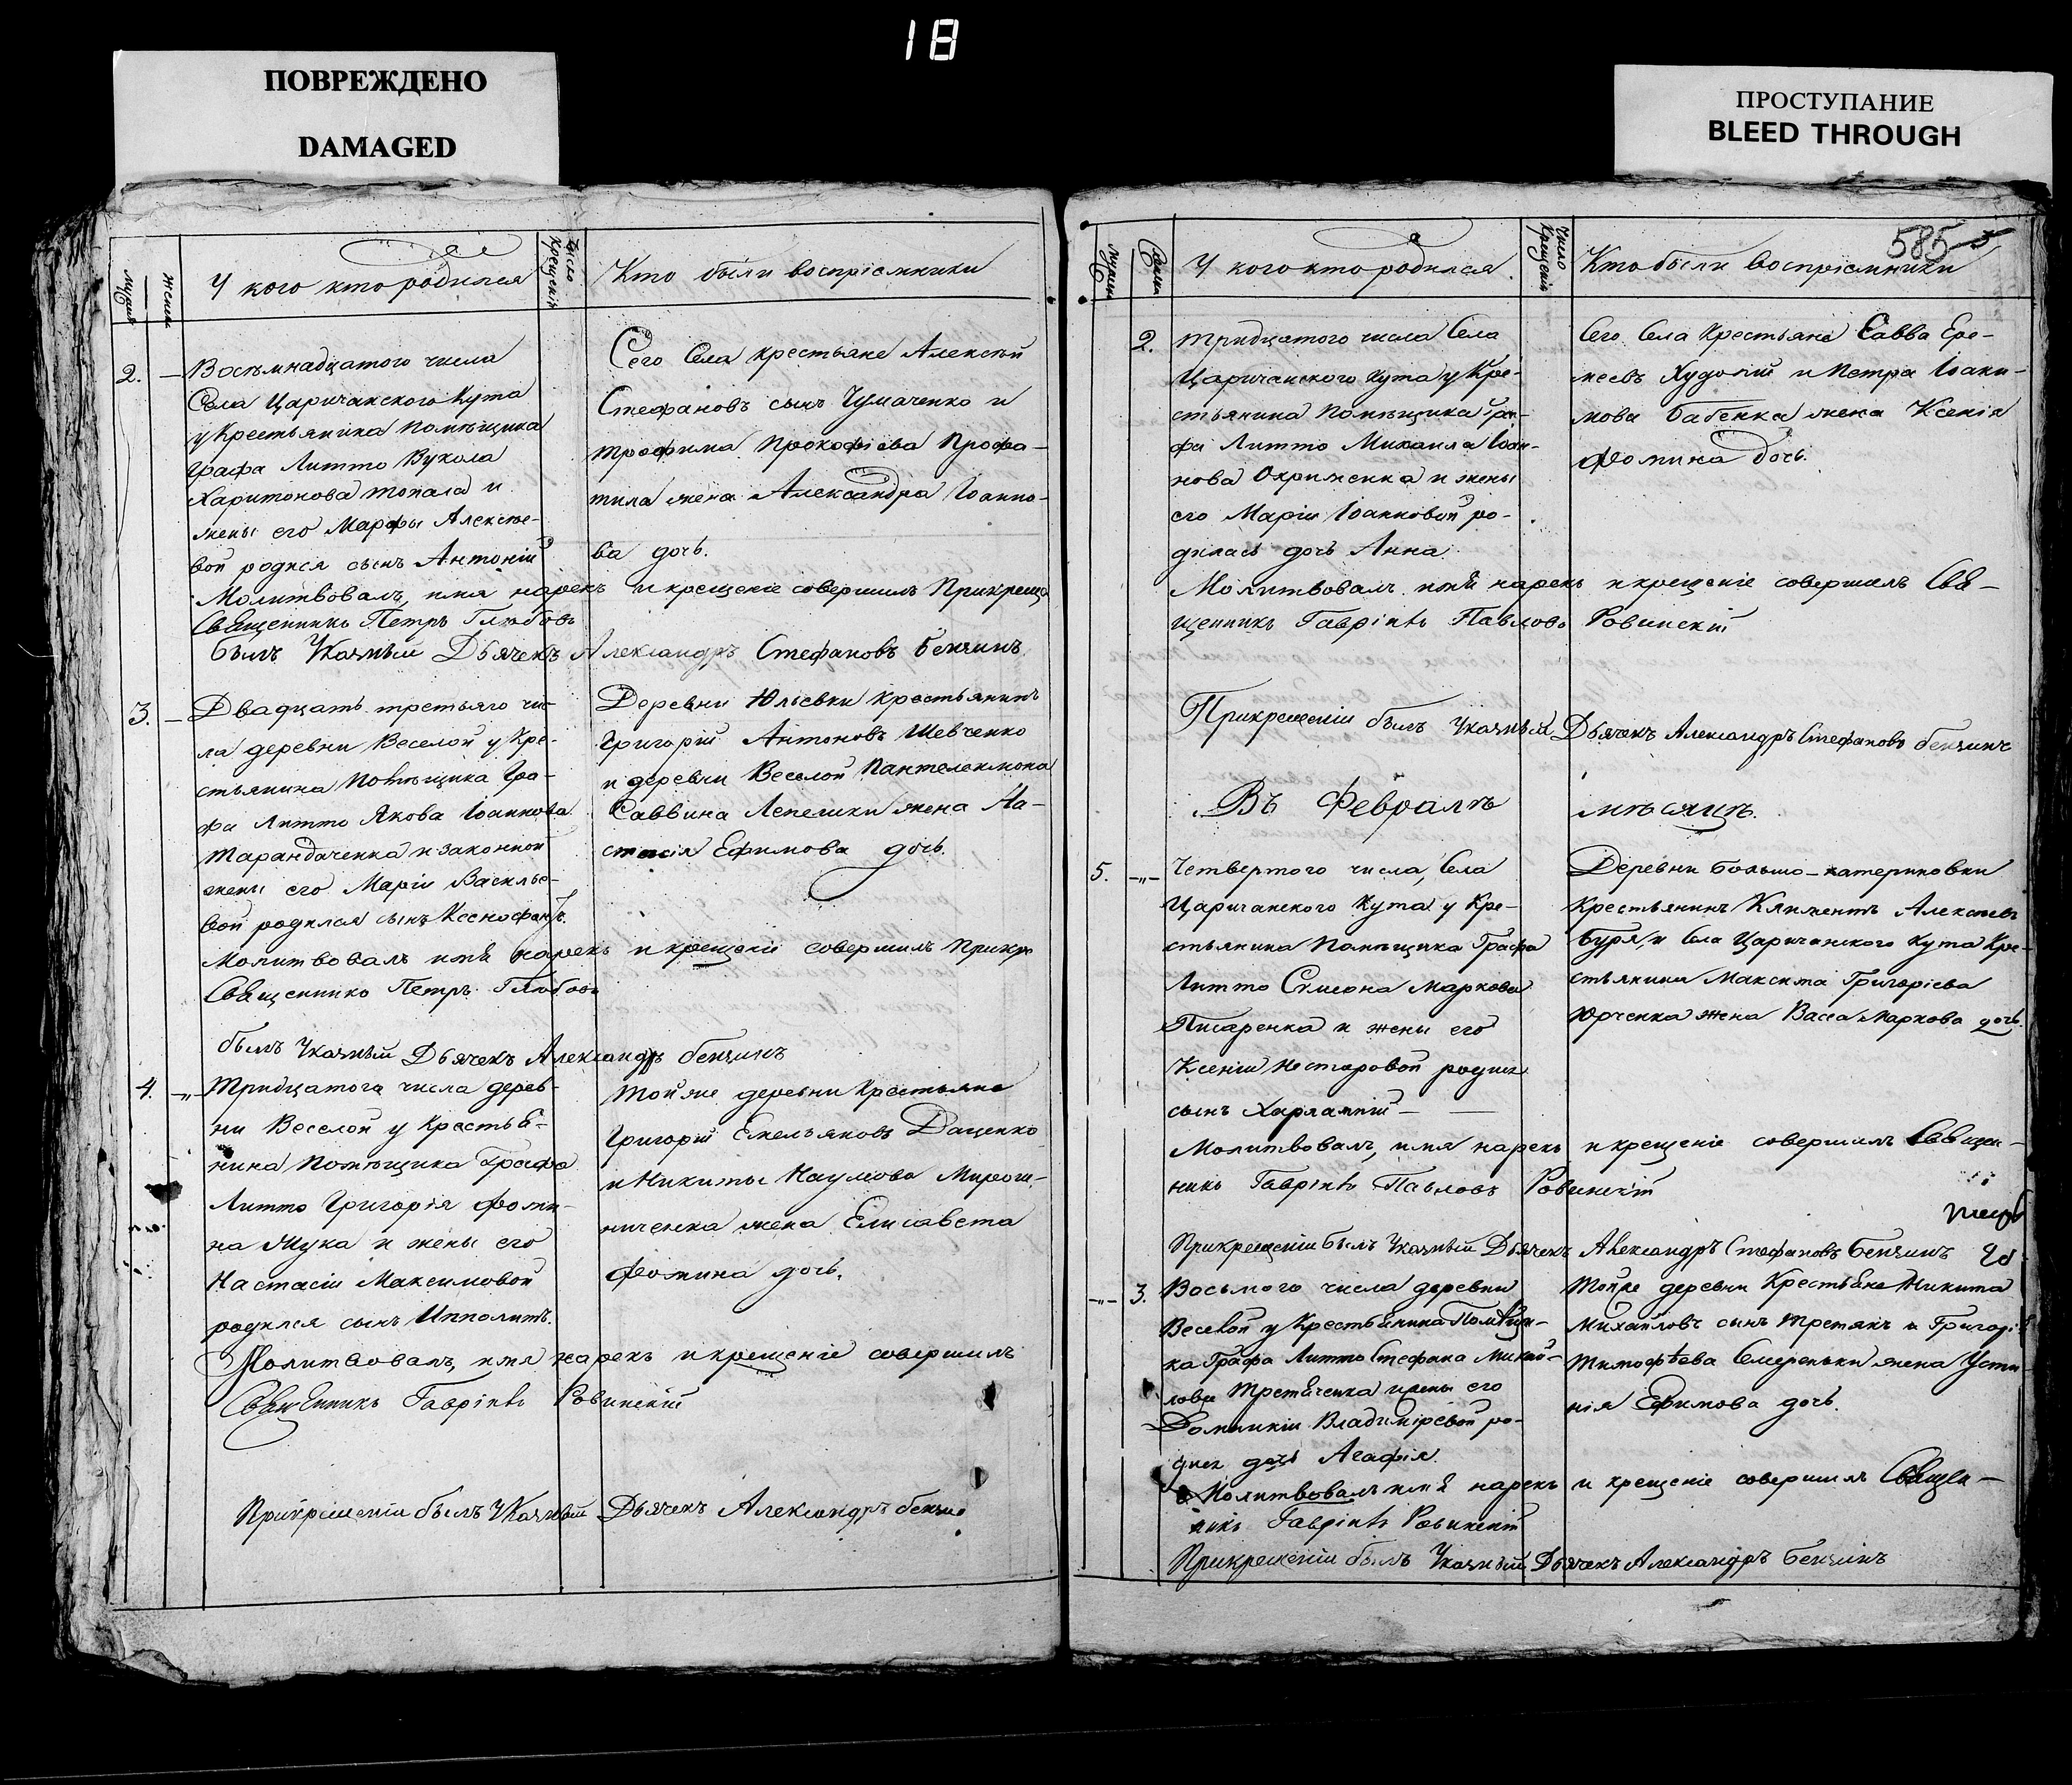 18
ПОВРЕЖДЕНО
DAMAGED
ПРОСТУПАНИЕ
BLEED THROUGH
Мужеск
Женска
У кого кто родился
Число Крещенія
Кто были воспріемники
2.
Восемнадцатого числа
Села Царичанского Кута
у Крестьянина Помѣщика
Графа Литто Вукола
Харитонова Топала и
жены его Марфы Алексѣе-
вой родися сынъ Антоній
Сего Села крестьяне Алексѣй
Стефановъ сынъ Чумаченко и
Трофима Прокофіева Профа-
тила жена Александра Іоанно-
ва дочь.
Молитвовалъ, имя нарекъ и крещеніе совершилъ Прикреще
Священникъ Петръ Глюбовъ
былъ Указный Дьячекъ Александръ Стефановъ Бензинъ
3.
Двадцать третьяго чи-
ла деревни Веселой у Кре-
стьянина Помѣщика Гра-
фа Литто Якова Іоаннова
Тарандаченка и законной
жены его Маріи Василье-
вой родился сынъ Ксенофонтъ.
Деревни Юльевки крестьянинъ
Григорій Антоновъ Шевченко
и деревни Веселой Пантелеимона
Саввина Лепешки жена На-
стасія Ефимова дочь.
Молитвовалъ имя нарекъ и крещеніе совершилъ Прикре
Священникъ Петръ Глюбовъ
былъ Указный Дьячекъ Александръ Бензинъ
4.
Тридцатого числа дерев-
ни Веселой у Крестья-
нина Помѣщика Графа
Литто Григорія Фоми-
на Жука и жены его
Настасіи Максимовой
родился сынъ Ипполитъ.
Той же деревни Крестьяне
Григорій Емельяновъ Даценко
и Никиты Наумова Мирош-
ниченка жена Елисавета
Фомина дочь.
Молитвовалъ, имя нарекъ и крещеніе совершилъ
Священникъ Гавріилъ Ровинскій
При крещеніи былъ Указный Дьячекъ Александръ Бензин
585
Мужеск
Женска
У кого кто родился.
Число Крещенія
Кто были воспріемники
2.
Тридцатого числа Села
Царичанского Кута у Кре-
стьянина Помѣщика Гра-
фа Литто Михаила Іоан-
нова Охрименка и жены
его Маріи Іоанновой ро-
дилась дочь Анна
Сего Села Крестьяне Савва Ере-
меевъ Худолій и Петра Іоаки-
мова Бабенка жена Ксенія
Фомина дочь.
Молитвовалъ имя нарекъ и крещеніе совершилъ Свя-
щенникъ Гавріилъ Павловъ Ровинскій
Прикрещеніи былъ Указный Дьячекъ Александръ Стефановъ Бензинъ
Въ Февралѣ мѣсяцѣ.
5.
Четвертого числа, Села
Царичанского Кута у Кре-
стьянина Помѣщика Графа
Литто Симеона Маркова
Писаренка и жены его
Ксеніи Несторовой родися
сынъ Харлампій
Деревни Большо-катериновки
Крестьянинъ Климентъ Алексѣевъ
Буря, и Села Царичанского Кута Кре-
стьянина Максима Григоріева
Юрченка жена Васса Маркова дочь.
Молитвовалъ, имя нарекъ и крещеніе совершилъ Священ-
никъ Гавріилъ Павловъ Ровинскій
Прикрещеніи былъ Указный Дьячекъ Александръ Стефановъ Бензинъ
3.
Восьмого числа деревни
Веселой у Крестьянина Помѣщи-
ка Графа Литто Стефана Михай-
лова Третяченка и жены его
Домникіи Владиміревой ро-
дися дочь Агафія.
Тойже деревни Крестьяне Никита
Михайловъ сынъ Третякъ и Григорі
Тимофѣева Смереньки жена Усти-
нія Ефимова дочь.
Молитвовалъ имя нарекъ и крещеніе совершилъ Священ-
никъ Гавріилъ Ровинскій
Прикрещеніи былъ Указный Дьячекъ Александръ Бензинъ